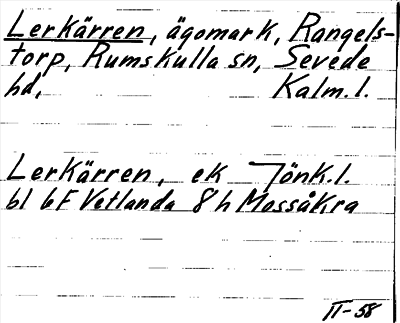 Lerkärren, ägomark, Rangels-
torp, Rumskulla sn, Sevede
hd, Kalm. l.
Lerkärren, ek Jönk. l.
bl 6F Vetlanda 8h Mossåkra
II-58